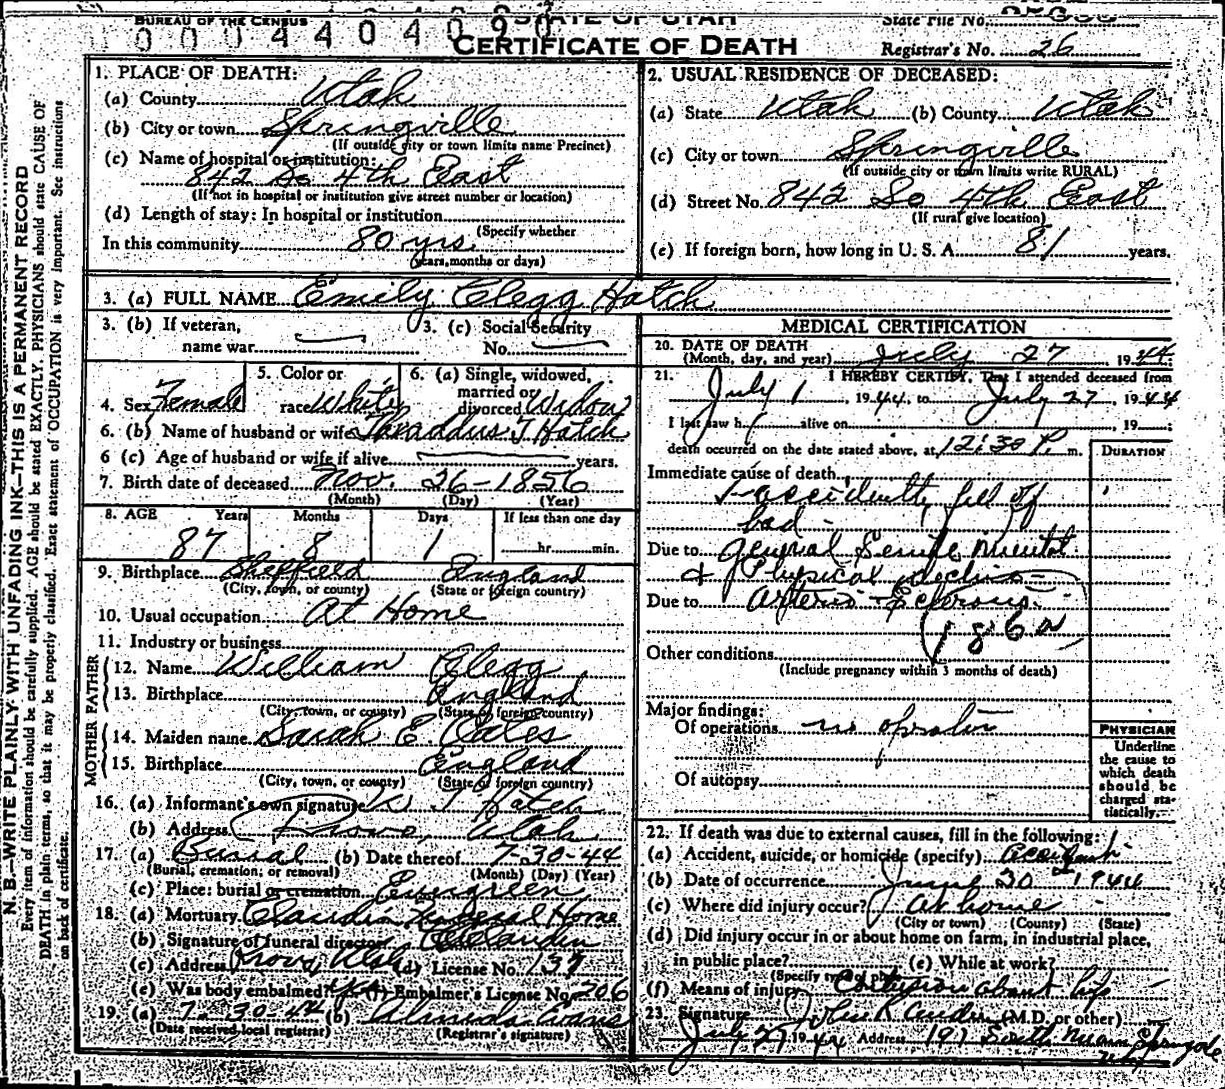 BUREAU OF THE CENSUS
STATE OF UTAH
State File No.
0 0 0 4 4 0 4 0 9 0
CERTIFICATE OF DEATH
Registrar's No. 26
N. B.—WRITE PLAINLY WITH UNFADING INK—THIS IS A PERMANENT RECORD
Every item of information should be carefully supplied. AGE should be stated EXACTLY. PHYSICIANS should state CAUSE OF
DEATH in plain terms, so that it may be properly classified. Exact statement of OCCUPATION is very important. See instructions
on back of certificate.
1. PLACE OF DEATH:
(a) County Utah
(b) City or town Springville
(If outside city or town limits name Precinct)
(c) Name of hospital or institution:
842 So 4th East
(If not in hospital or institution give street number or location)
(d) Length of stay: In hospital or institution
(Specify whether
In this community 80 yrs.
years, months or days)
2. USUAL RESIDENCE OF DECEASED:
(a) State Utah (b) County Utah
(c) City or town Springville
(If outside city or town limits write RURAL)
(d) Street No. 842 So 4th East
(If rural give location)
(e) If foreign born, how long in U. S. A. 81 years.
3. (a) FULL NAME Emily Clegg Hatch
3. (b) If veteran,
name war
3. (c) Social Security
No.
4. Sex Female
5. Color or
race White
6. (a) Single, widowed,
married or
divorced Widow
6. (b) Name of husband or wife Thraddus T Hatch
6 (c) Age of husband or wife if alive years.
7. Birth date of deceased Nov. 26-1856
(Month) (Day) (Year)
8. AGE Years Months Days If less than one day
87 8 1 hr. min.
9. Birthplace Sheffield England
(City, town, or county) (State or foreign country)
10. Usual occupation At Home
11. Industry or business
FATHER
12. Name William Clegg
13. Birthplace England
(City, town, or county) (State or foreign country)
MOTHER
14. Maiden name Sarah E. Oates
15. Birthplace England
(City, town, or county) (State or foreign country)
16. (a) Informant's own signature T Hatch
(b) Address Provo, Utah
17. (a) Burial (b) Date thereof 7-30-44
(Burial, cremation, or removal) (Month) (Day) (Year)
(c) Place: burial or cremation Evergreen
18. (a) Mortuary Claudin Funeral Home
(b) Signature of funeral director Claudin
(c) Address Provo, Utah (d) License No. 137
(e) Was body embalmed? yes (f) Embalmer's License No. 206
19. (a) 7-30-44 (b) Almeda Evans
(Date received local registrar) (Registrar's signature)
MEDICAL CERTIFICATION
20. DATE OF DEATH
(Month, day, and year) July 27, 1944.
21. I HEREBY CERTIFY, That I attended deceased from
July 1, 1944, to July 27, 1944
I last saw h alive on , 19 ;
death occurred on the date stated above, at 12:30 P. m.
DURATION
Immediate cause of death
accidently fell off
bed -
Due to General Senile Mental
& Physical decline
Due to Arterio-Sclerosis.
(186a)
Other conditions
(Include pregnancy within 3 months of death)
Major findings:
Of operations no operation
Of autopsy
PHYSICIAN
Underline
the cause to
which death
should be
charged sta-
tistically.
22. If death was due to external causes, fill in the following:
(a) Accident, suicide, or homicide (specify) Accident
(b) Date of occurrence June 30 1944
(c) Where did injury occur? At home
(City or town) (County) (State)
(d) Did injury occur in or about home on farm, in industrial place,
in public place? (e) While at work?
(Specify type of place)
(f) Means of injury Contusion about hip
23. Signature John R. (M.D. or other)
July 27, 1944 Address 197 South Main Springville
Utah